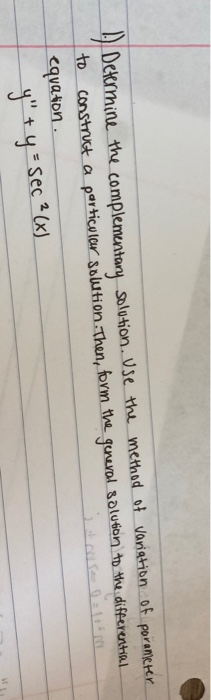 1.) Determine the complementary solution. Use the method of variation of parameter
to construct a particular solution. Then, form the general solution to the differential
equation.
y" + y = sec ² (x)